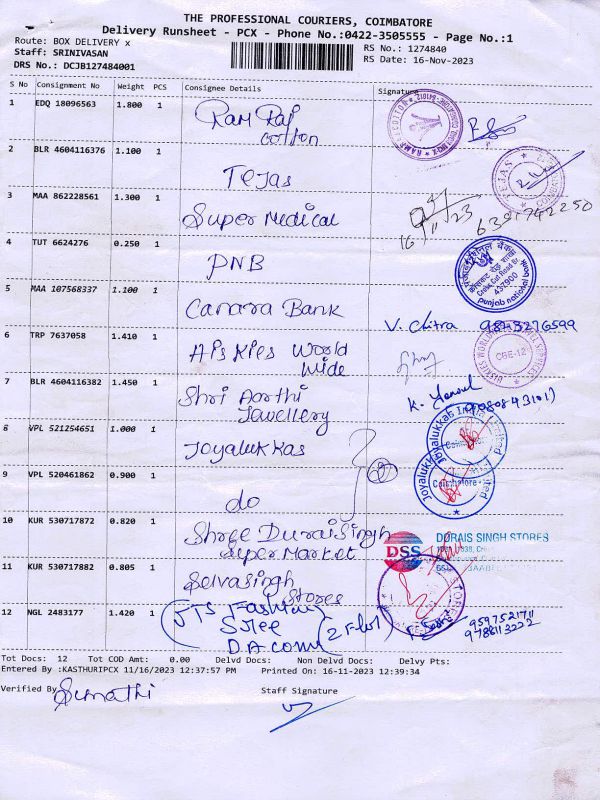 THE PROFESSIONAL COURIERS, COIMBATORE
Delivery Runsheet - PCX - Phone No.:0422-3505555 - Page No.:1
Route: BOX DELIVERY x
RS No.: 1274840
Staff: SRINIVASAN
RS Date: 16-Nov-2023
DRS No.: DCJB127484001
S No Consignment No Weight PCS Consignee Details Signature
1 EDQ 18096563 1.800 1 Ram Raj
cotton
2 BLR 4604116376 1.100 1 Tejas
TEJAS
3 MAA 862228561 1.300 1 Super Medical
16/11/23 6381742250
4 TUT 6624276 0.250 1 PNB
punjab national bank
5 MAA 107568337 1.100 1 Canara Bank V. Chitra 9843276599
6 TRP 7637058 1.410 1 World
Wide
CBE-12
7 BLR 4604116382 1.450 1 Shri Aarthi
Jewellery
8 VPL 521254651 1.000 1 Joyalukkas
Joyalukkas India Limited
Coimbatore
9 VPL 520461862 0.900 1 do
Joyalukkas India Limited
Coimbatore
10 KUR 530717872 0.820 1 Shree Duraisingh
Super Market
DSS DURAIS SINGH STORES
11 KUR 530717882 0.805 1 Selvasingh
Stores
12 NGL 2483177 1.420 1 JTS Fashion
Sree
9788113222
Tot Docs: 12 Tot COD Amt: 0.00 Delvd Docs: Non Delvd Docs: Delvy Pts:
Entered By :KASTHURIPCX 11/16/2023 12:37:57 PM Printed On: 16-11-2023 12:39:34
Verified By Sumathi
Staff Signature